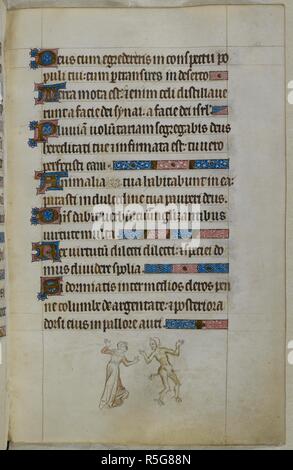 Deus cum egredereris in conspectu po
puli tui: cum ptransires in deserto
Terra mota est: etenim celi distillaue
runt a facie dei synai. a facie dei isrl
Pluuiã uoluntariam segregabis deus
hereditati tue & infirmata est: tu uero
perfecisti eam
Animalia tua habitabunt in ea:
parasti in dulcedine tua pauperi deus.
Dñs dabit uerbũ euuangelizantibus
uirtute multa
Rex uirtutum dilecti dilecti: & speciei do
mus diuidere spolia.
Si dormiatis inter medios cleros: pen
ne columbe deargentate: & posteriora
dorsi eius in pallore auri.
alamy
Image ID: R5G88N
www.alamy.com